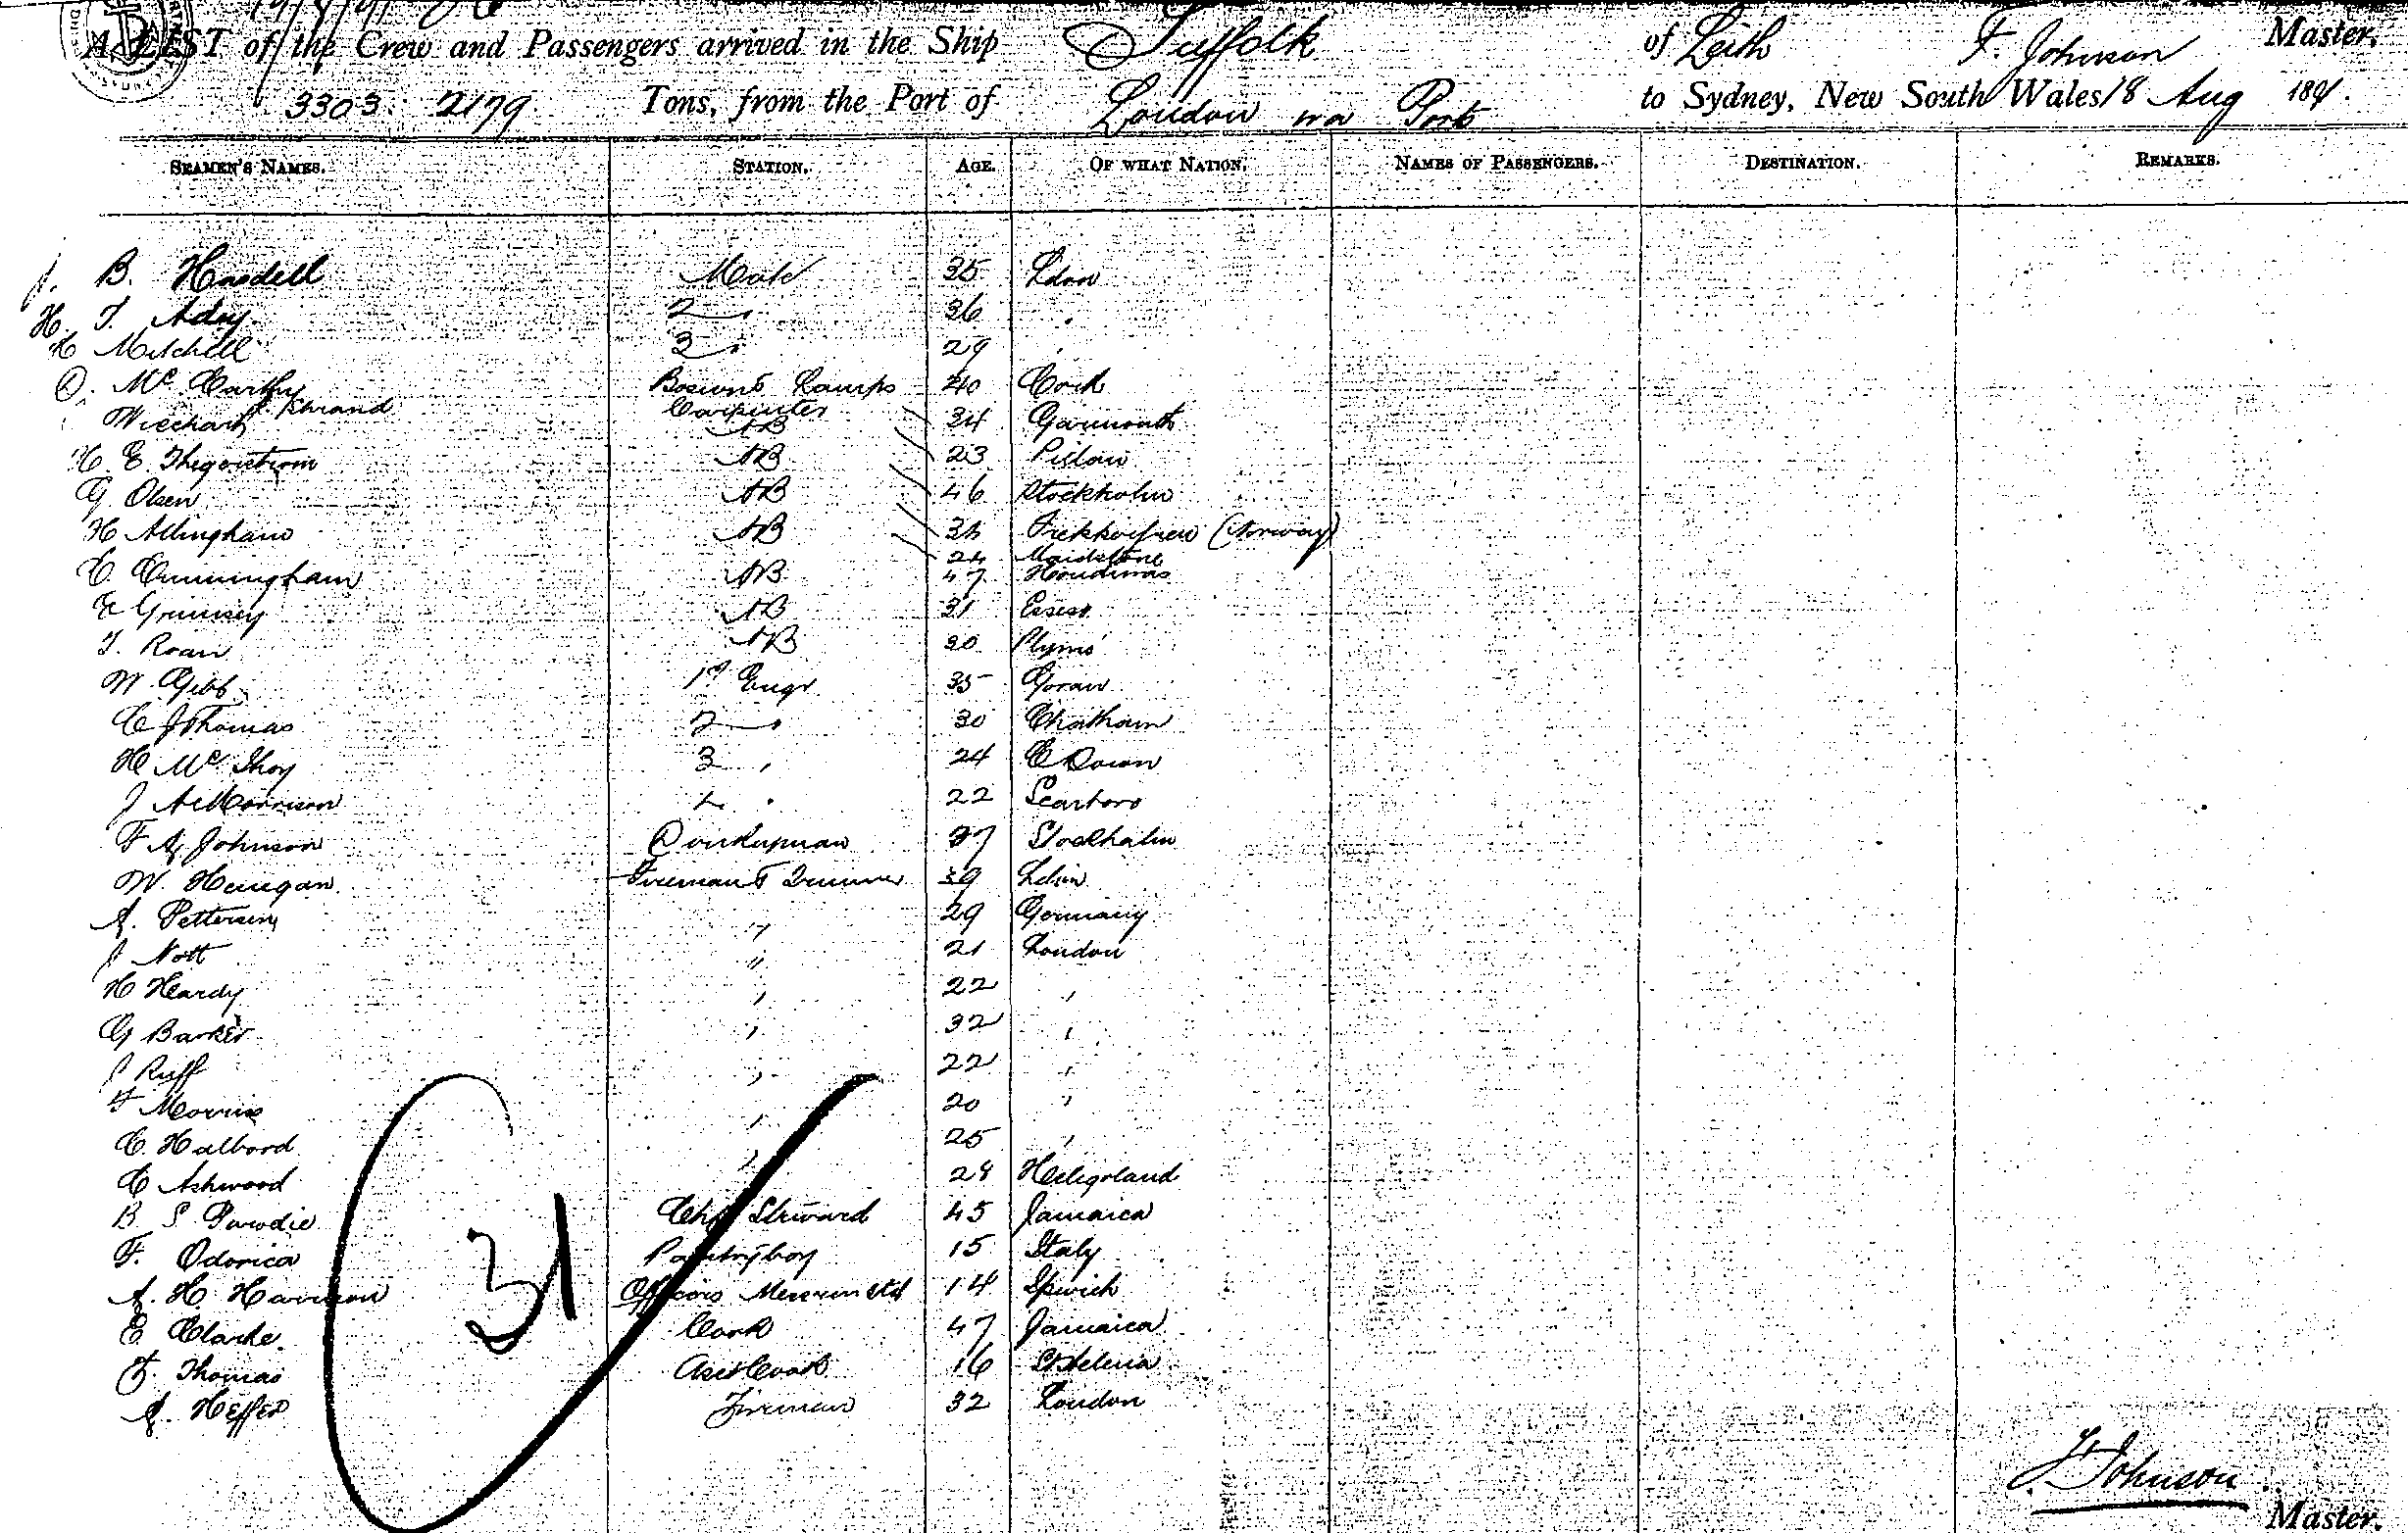 A LIST of the Crew and Passengers arrived in the Ship Suffolk of Leith F. Johnson Master,
3303. 2179. Tons, from the Port of London via Ports to Sydney, New South Wales 18 Aug 1891.
SEAMEN'S NAMES. STATION. AGE. OF WHAT NATION. NAMES OF PASSENGERS. DESTINATION. REMARKS.
J. B. Hasdell Mate 35 Ldon
H. T. Ady 2 " 36 "
H Mitchell 3 " 29 "
D. Mc Carthy Bosun & Lamps 40 Cork
J. Carpenter 34 Garmouth
Wiechart AB 23
H. E. AB 46 Stockholm
G Olsen AB (Norway)
H Allingham AB 24 Maidstone
C. Cunningham AB 47
E Grimsey AB 31 Essex
T. Roan AB 30 Plymo
W. Gibb 1st Engr 35 Goran
C J Thomas 2 " 30 Chatham
H Mc 3 " 24 C Down
J A Morrison 4 " 22 Scarboro
F A Johnson Donkeyman 37 Stockholm
W. Henigan Fireman & Trimmer 39
A. Pettersen " 29 Germany
J Nott " 21 London
H Hardy " 22 "
G Barker " 32 "
J Ruff " 22 "
F Morris " 20 "
C. Halbord " 25 "
C Ashwood 28 Heligoland
B S Purdie Chf Steward 45 Jamaica
F. Odorica Pantryboy 15 Italy
A. H. Harrison Officers Messrm Std 14 Ipswich
E Clarke Cook 47 Jamaica
F. Thomas Asst Cook 16 St Helena
A. Heffer Fireman 32 London
31
F. Johnson
Master.